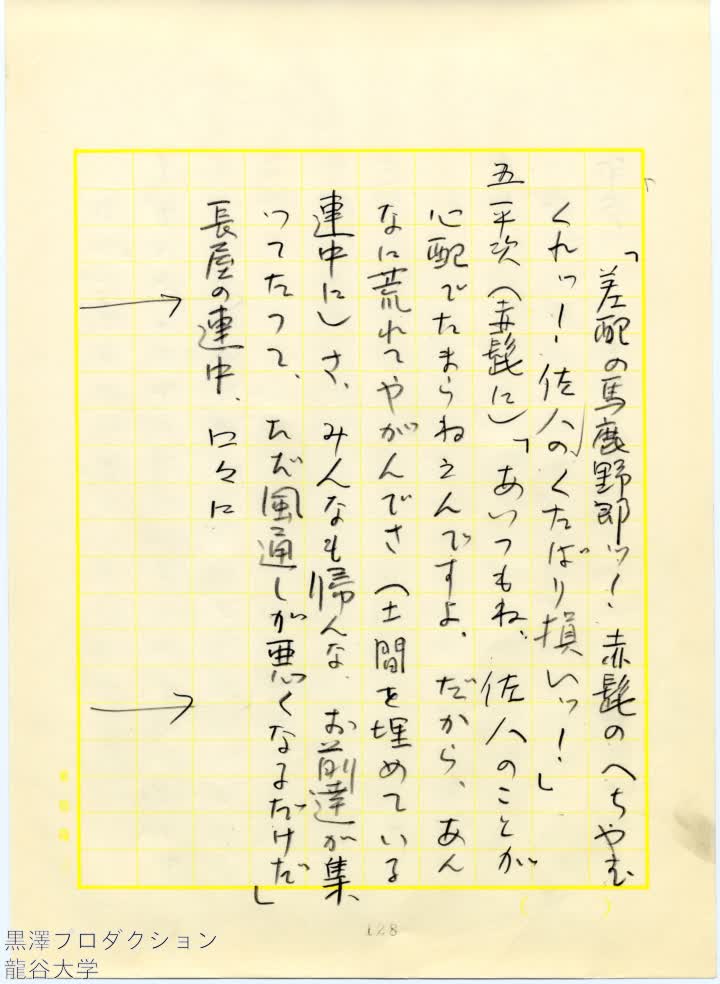 「差配の馬鹿野郎ッ！赤髭のへちやむ
くれッ！佐八のくたばり損いッ！」
五平次（赤髭に）「あいつもね、佐八のことが
心配でたまらねえんですよ、だから、あん
なに荒れてやがんでさ（土間を埋めている
連中に）さ、みんなも帰んな、お前達が集
つてたつて、ただ風通しが悪くなるだけだ」
長屋の連中、口々に
128
黒澤プロダクション
龍谷大学